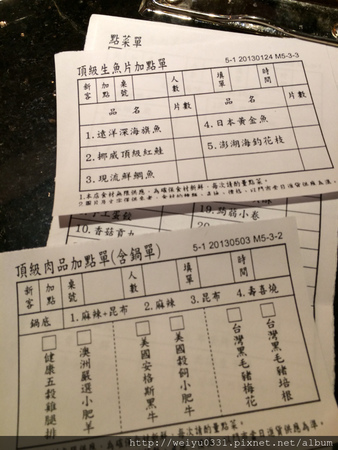 點菜單
頂級生魚片加點單
5-1 20130124 M5-3-3
新客 加點 桌號 人數 填單 時間
品名 片數 品名 片數
1.遠洋深海旗魚 4.日本黃金魚
2.挪威頂級紅鮭 5.澎湖海釣花枝
3.現流鮮鯛魚
手工蛋餃
10.香菇貢丸
20.
頂級肉品加點單(含鍋單)
5-1 20130503 M5-3-2
新客 加點 桌號 人數 填單 時間
鍋底 1.麻辣+昆布 2.麻辣 3.昆布 4.壽喜燒
健康五穀雞腿排
澳洲嚴選小肥羊
美國安格斯黑牛
美國穀飼小肥牛
台灣黑毛豬梅花
台灣黑毛豬培根
http://weiyu0331.pixnet.net/album